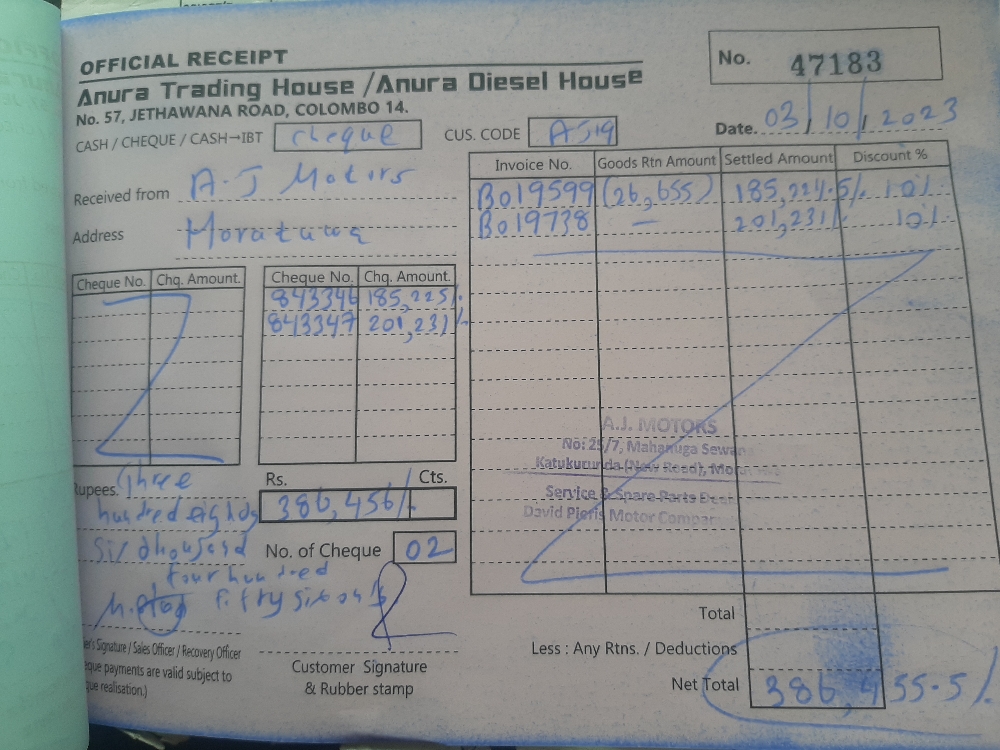 OFFICIAL RECEIPT
Anura Trading House /Anura Diesel House
No. 57, JETHAWANA ROAD, COLOMBO 14.
No. 47183
Date. 03/10/2023
CASH / CHEQUE / CASH→IBT cheque
CUS. CODE AJ19
Received from A.J Motors
Address Moratuwa
Invoice No. Goods Rtn Amount Settled Amount Discount %
B019599 (26,655) 185,224.5/. 10%
B019738 — 201,231/. 10%
Cheque No. Chq. Amount.
Cheque No. Chq. Amount.
843346 185,225/.
843347 201,231/.
A.J. MOTORS
No: 25/7, Mahanuga Sewan
Katukurunda (New Road),
Service & Spare Parts
David Pieris Motor
Rupees. Three
hundred eighty
six thousand
four hundred
fifty six only
Rs. Cts.
386,456/.
No. of Cheque 02
Signature / Sales Officer / Recovery Officer
payments are valid subject to
realisation.)
Customer Signature
& Rubber stamp
Total
Less : Any Rtns. / Deductions
Net Total 386,455.5/.